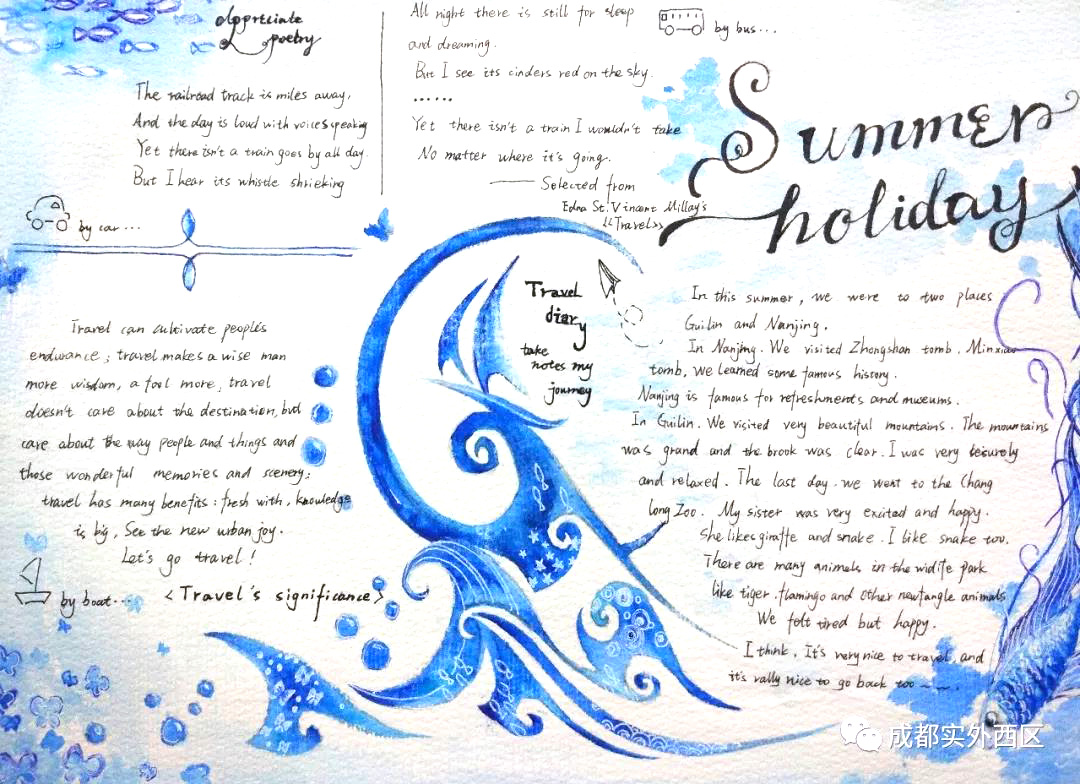 Appreciate
poetry
The railroad track is miles away,
And the day is loud with voices speaking
Yet there isn't a train goes by all day.
But I hear its whistle shrieking
All night there is still for sleep
and dreaming.
But I see its cinders red on the sky.
......
Yet there isn't a train I wouldn't take
No matter where it's going.
—— Selected from
Edna St. Vincent Millay's
《Travel》
by bus...
Summer
holiday
by car...
Travel can cultivate people's
endurance; travel makes a wise man
more wisdom, a fool more; travel
doesn't care about the destination, but
care about the way people and things and
those wonderful memories and scenery;
travel has many benefits: fresh with, knowledge
is big, See the new urban joy.
Let's go travel!
<Travel's significance>
by boat...
Travel
diary
take
notes my
journey
In this summer, we were to two places
Guilin and Nanjing.
In Nanjing. We visited Zhongshan tomb. Minxiao
tomb, we learned some famous history.
Nanjing is famous for refreshments and museums.
In Guilin. We visited very beautiful mountains. The mountains
was grand and the brook was clear. I was very leisurely
and relaxed. The last day. we went to the Chang
long Zoo. My sister was very excited and happy.
She likes giraffe and snake. I like snake too.
There are many animals in the widlife park
like tiger. flamingo and other newfangle animals
We felt tired but happy.
I think, It's very nice to travel, and
it's rally nice to go back too ~ ~.
成都实外西区